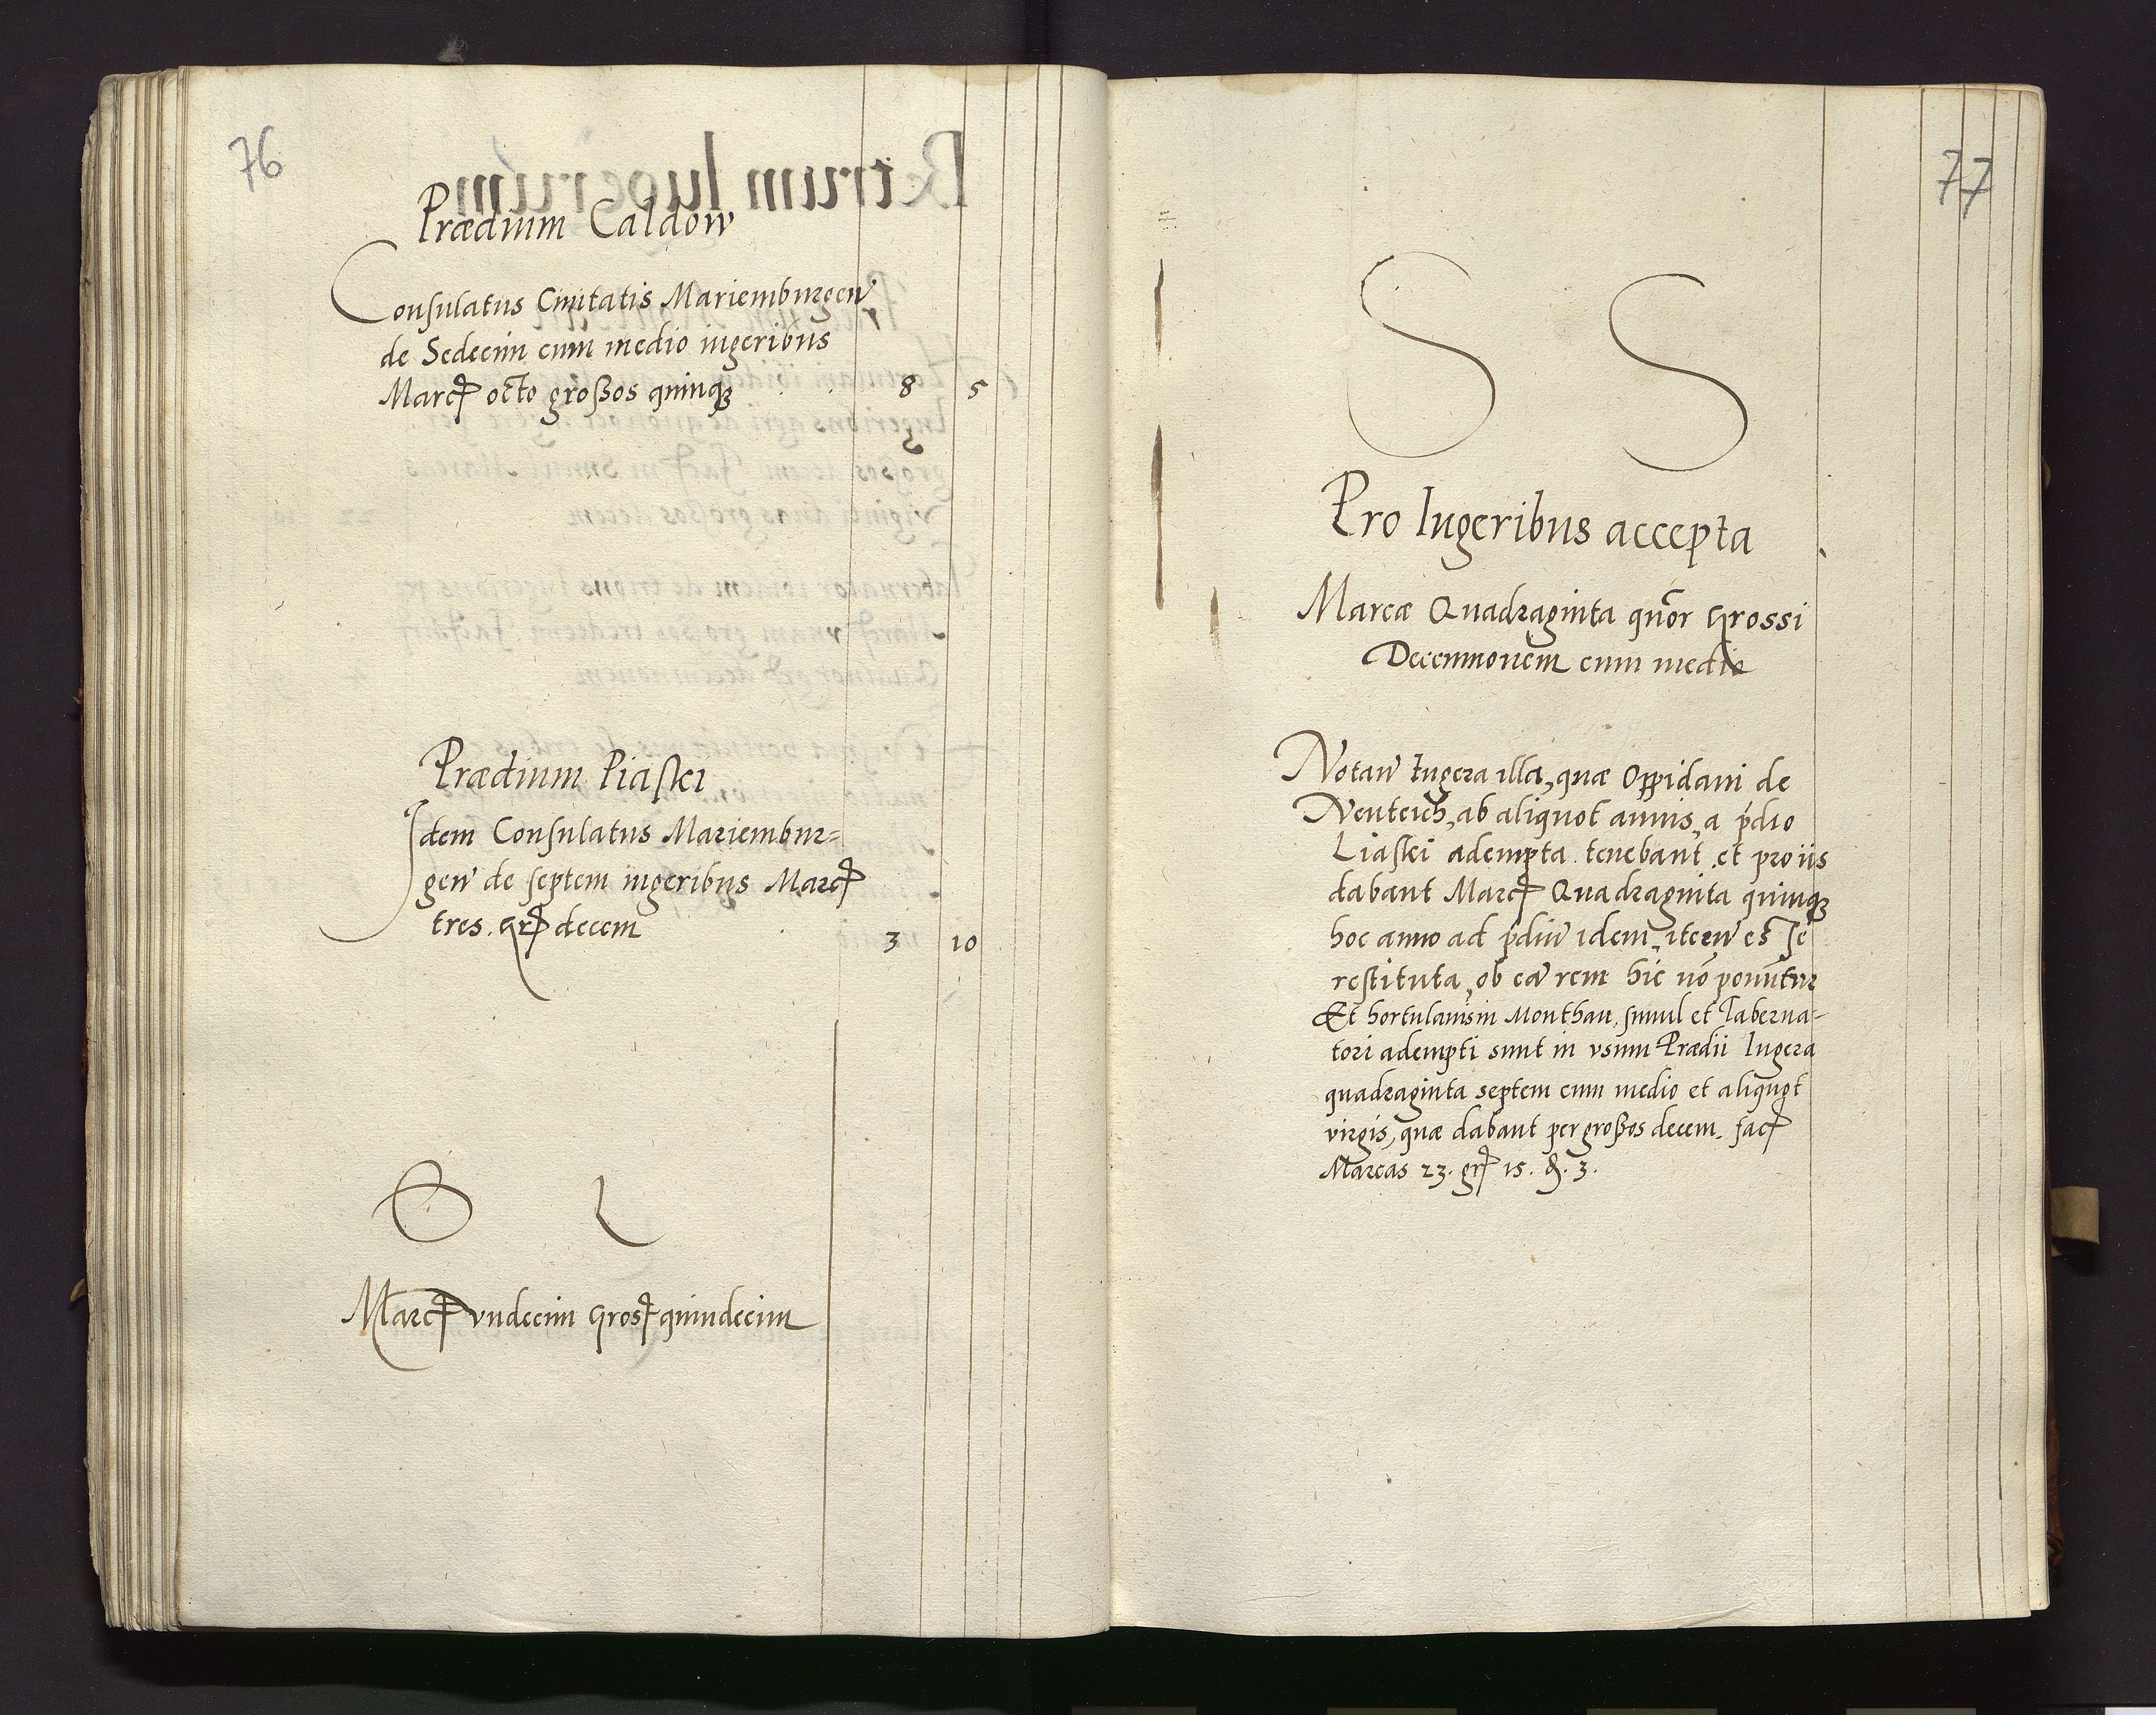 76
Prædium Caldow
Consulatus Ciuitatis Mariemburgen̄
de Sedecim cum medio iugeribus
Marcꝭ octo großos quinqꝫ 8 5
Prædium Piaski
Idem Consulatus Mariembur=
gen̄ de septem iugeribus Marcꝭ
tres. grꝭ decem 3 10
Marcꝭ vndecim Grosꝭ quindecim
77
S S
Pro Iugeribus accepta
Marcæ Quadraginta quor Grossi
Decemnouem cum medio
Notan̄ Iugera illa, quæ Oppidani de
Neuteich, ab aliquot annis, a p̄dio
Liaski adempta tenebant et pro iis
dabant Marcꝭ Quadraginta quinqꝫ
hoc anno ad p̄diū idem,
restituta, ob eā rem hic nō ponūtur
Et hortulanis in Monthau, simul et Taberna-
tori adempti sunt in vsum Prædii Iugera
quadraginta septem cum medio et aliquot
virgis, quæ dabant per großos decem. facꝭ
Marcas 23. grꝭ 15. ₰. 3.